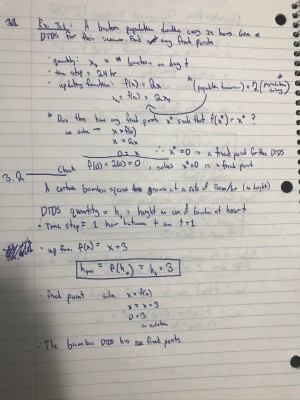 3.1 Ex. 3.1 : A bacteria population doubles every 24 hours. Give a
DTDS for this scenario. Find any fixed points
· quantity: x = # bacteria on day t
· time step = 24 hr
· updating function: f(x) = 2x
(population tomorrow) = 2 (population today)
* Does this have any fixed points x* such that f(x*) = x* ?
we solve → x = f(x)
x = 2x
0 = x ∴ x*=0 is a fixed point for this DTDS
Check f(0) = 2(0) = 0 , x*=0 is a fixed point
3.2
A certain bamboo species grows at a rate of 3cm/hr (in height)
DTDS quantity = h = height in cm of bamboo at hour t
· Time step = 1 hour between t an t+1
· up func. f(x) = x + 3
= f(h ) = h + 3
· fixed point solve x = f(x)
x = x + 3
0 = 3
no solution
∴ The bamboo DTDS has no fixed points